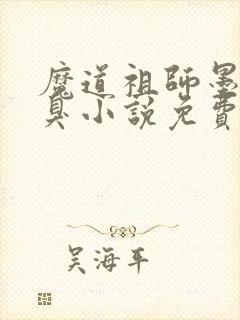 魔道祖師墨
臭小説免費
吴海平